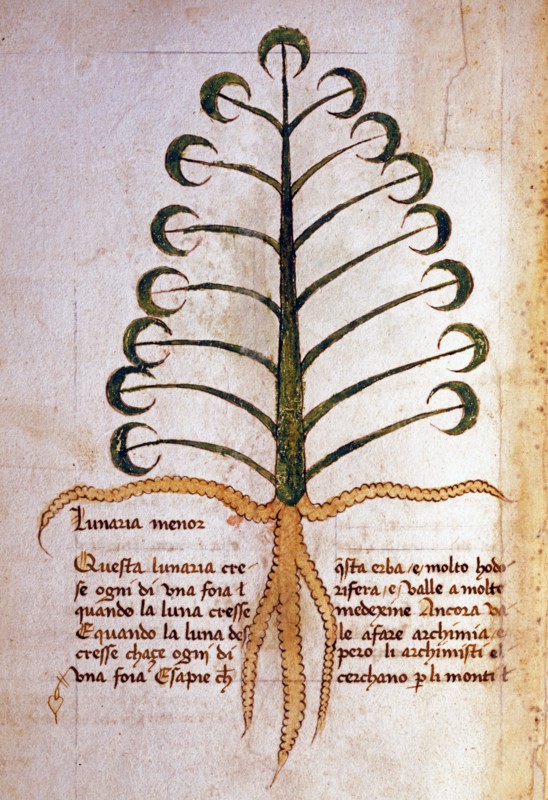 Lunaria menor
Questa lunaria cre-
se ogni di vna foia l
quando la luna cresse
E quando la luna des
cresse chaçe ogni di
vna foia E sapie ch̄
q̄sta erba /e/ molto hodo-
rifera /e/ valle a molte
medexine Ancora va
le afare archimia /e
pero li archimisti el
cerchano p̱ li monti